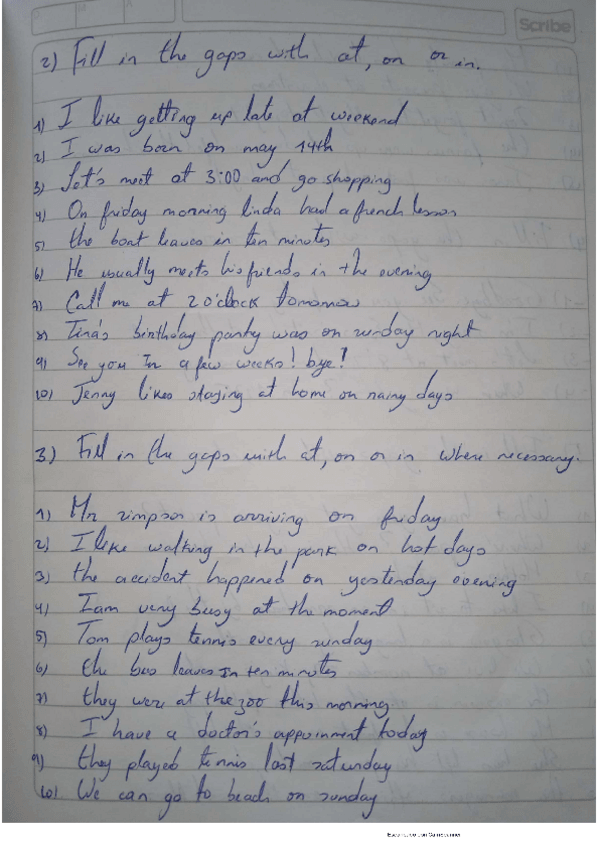 Scribe
2) Fill in the gaps with at, on or in.
1) I like getting up late at weekend
2) I was born on may 14th
3) Let's meet at 3:00 and go shopping
4) On friday morning linda had a french lesson
5) the boat leaves in ten minutes
6) He usually meets his friends in the evening
7) Call me at 2 o'clock tomorrow
8) Tina's birthday party was on sunday night
9) See you In a few weeks! bye!
10) Jenny likes staying at home on rainy days
3) Fill in the gaps with at, on or in where necessary.
1) Mr simpson is arriving on friday
2) I like walking in the park on hot days
3) the accident happened on yesterday evening
4) I am very busy at the moment
5) Tom plays tennis every sunday
6) the bus leaves In ten minutes
7) they were at the zoo this morning.
8) I have a doctor's appoinment today
9) they played tennis last saturday
10) We can go to beach on sunday